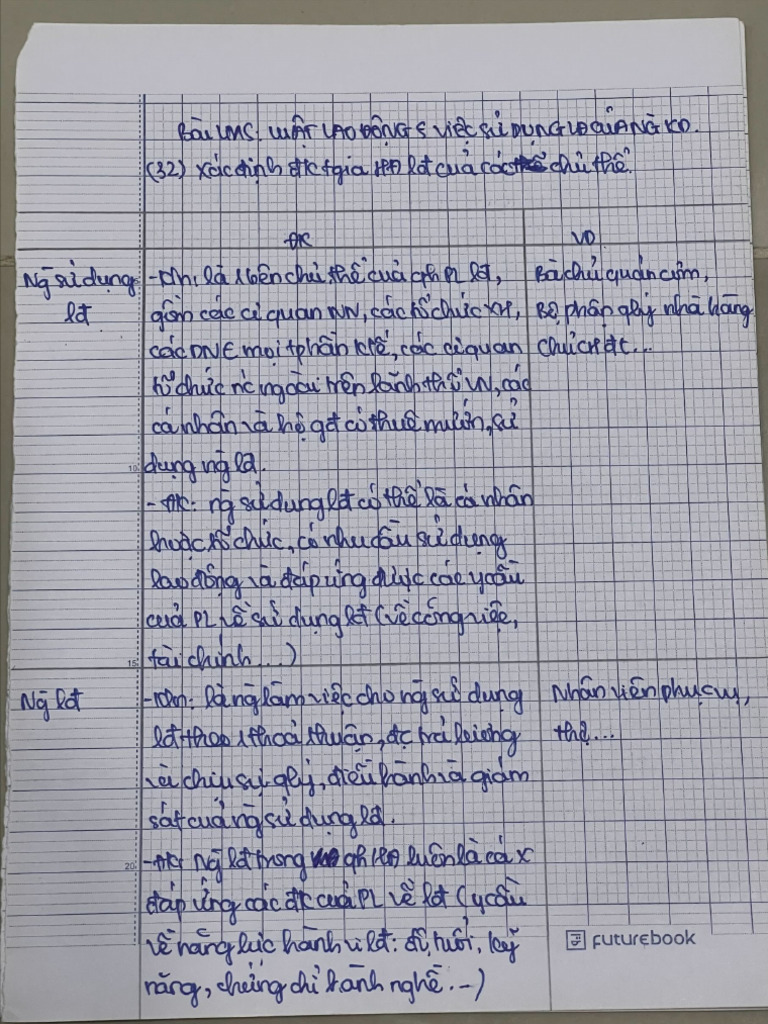 Bài LMS: LUẬT LAO ĐỘNG & VIỆC SỬ DỤNG LĐ CỦA NG KD.
(32) Xác định đk tgia HĐ lđ của các chủ thể.
ĐK
VD
Ng sử dụng
lđ
-Kn: là 1 bên chủ thể của qh PL lđ,
gồm các cơ quan NN, các tổ chức XH,
các DN ∈ mọi tphần ktế, các cơ quan
tổ chức nc ngoài trên lãnh thổ VN, các
cá nhân và hộ gđ có thuê mướn, sử
dụng ng lđ.
- ĐK: ng sử dụng lđ có thể là cá nhân
hoặc tổ chức, có nhu cầu sử dụng
lao động và đáp ứng được các ycầu
của PL về sử dụng lđ (về công việc,
tài chính...)
Bà chủ quán cơm,
Bộ phận qlý nhà hàng
Ng lđ
-Kn: là ng làm việc cho ng sử dụng
lđ theo thoả thuận, đc trả lương
và chịu sự qlý, điều hành và giám
sát của ng sử dụng lđ.
-ĐK: Ng lđ trong qh luôn là
đáp ứng các đk của PL về lđ (ycầu
về năng lực hành vi lđ: độ tuổi, kỹ
năng, chứng chỉ hành nghề...)
Nhân viên phục vụ,
thợ...
10
15
20
FUTUREBOOK